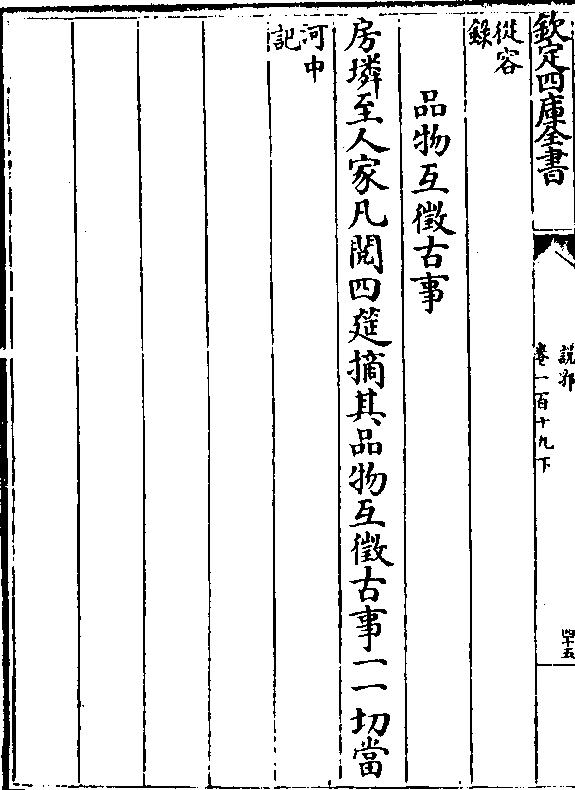 欽定四庫全書
說郛
卷一百十九下
四十五
從容
錄
品物互徵古事
房璘至人家凡閱四筵摘其品物互徵古事一一切當
河中
記